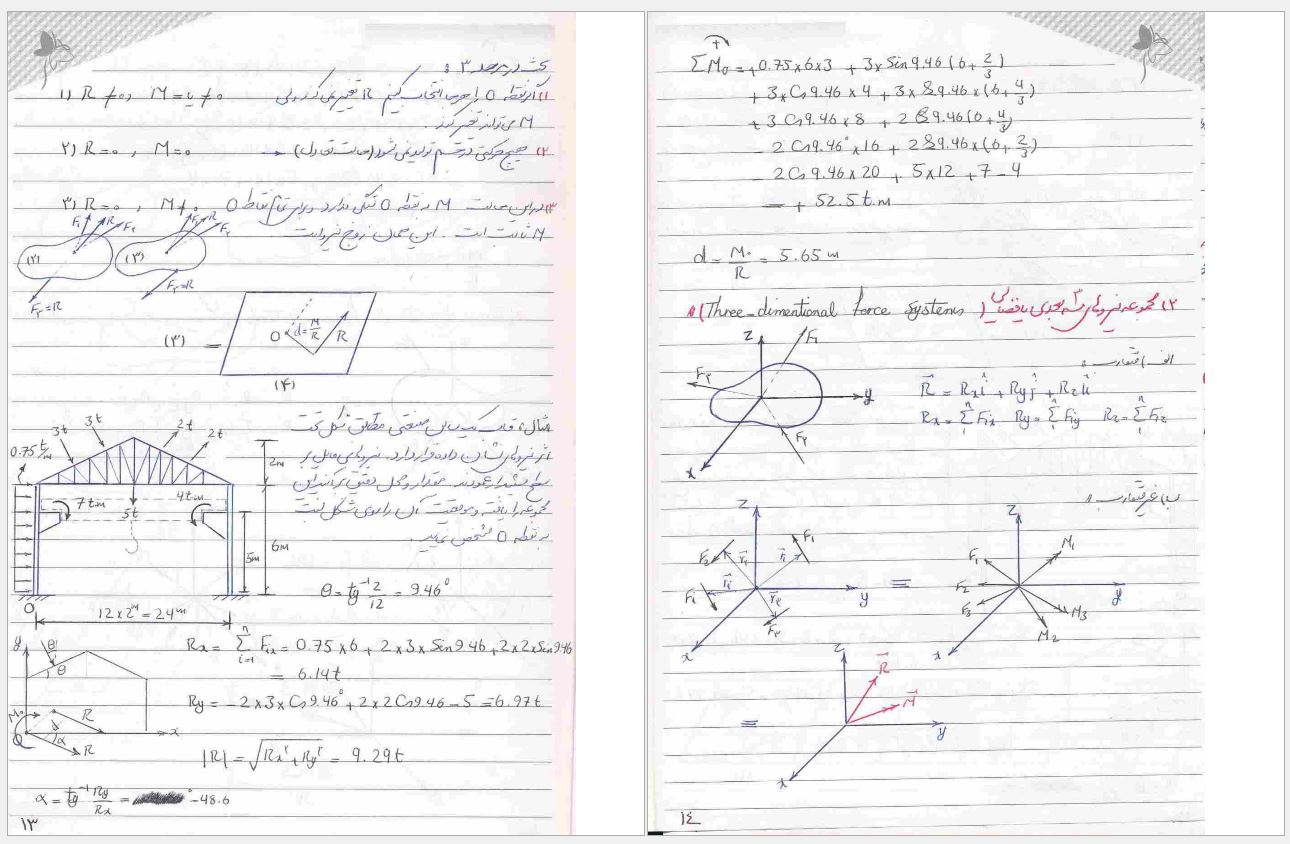 بحث در مرحله ۳ :
۱) R ≠ 0 , M = یا ≠ 0
۱) اگر نقطه O را هر جا انتخاب کنیم R تغییر نمی‌کند ولی
M می‌تواند تغییر کند.
۲) R = 0 , M = 0
۲) هیچ حرکتی در جسم تولید نمی‌شود (حالت تعادل)
۳) R = 0 , M ≠ 0
۳) در این حالت M به نقطه O بستگی ندارد و برای تمام نقاط O
M ثابت است. این همان زوج نیرو است
F₁ R F₂
F₁ R F₂
(۲)
(۳)
F₃=R
F₃=R
(۳) =
O d=M/R R
(۴)
مثال: قاب یک سالن صنعتی مطابق شکل تحت
اثر نیروهای نشان داده قرار دارد. نیروهای مایل بر
سطح شیبدار عمودند. مقدار و محل دقیق برآیند این
مجموعه را یافته و موقعیت آن را روی شکل نسبت
به نقطه O مشخص نمایید.
3t 3t 2t 2t
0.75 t/m
2m
7 t.m 4 t.m
5t
5m 6m
O
12 x 2m = 24m
θ = tg⁻¹ 2/12 = 9.46°
Rx = Σ(i=1 to n) Fix = 0.75x6 + 2x3xSin9.46 + 2x2xSin9.46
= 6.14t
Ry = -2x3xCos9.46° + 2x2Cos9.46 - 5 = 6.97t
y θ θ
M₀ d R
O α R x
|R| = √(Rx² + Ry²) = 9.29t
α = tg⁻¹ Ry/Rx = -48.6
۱۳
ΣM₀ = +0.75x6x3 + 3xSin9.46(6+2/3)
+ 3xCos9.46x4 + 3xS9.46x(6+4/3)
+ 3Cos9.46x8 + 2S9.46(6+4/3)
- 2Cos9.46°x16 + 2S9.46x(6+2/3)
- 2Cos9.46x20 + 5x12 + 7 - 4
= + 52.5 t.m
d = M₀/R = 5.65 m
۲) مجموعه نیروهای سه بعدی یا فضایی (Three-dimentional force systems) :
الف) متقارب :
z F₁
F₃ y
F₂
x
R⃗ = Rxî + Ryĵ + Rzk̂
Rx = Σ Fix Ry = Σ Fiy Rz = Σ Fiz
ب) غیر متقارب :
z F₁ F₂ r₁ Fi ri r₂ F₃ y x
=
z M₁ F₁ F₂ F₃ M₃ M₂ y x
=
z R⃗ M⃗ y x
۱٤